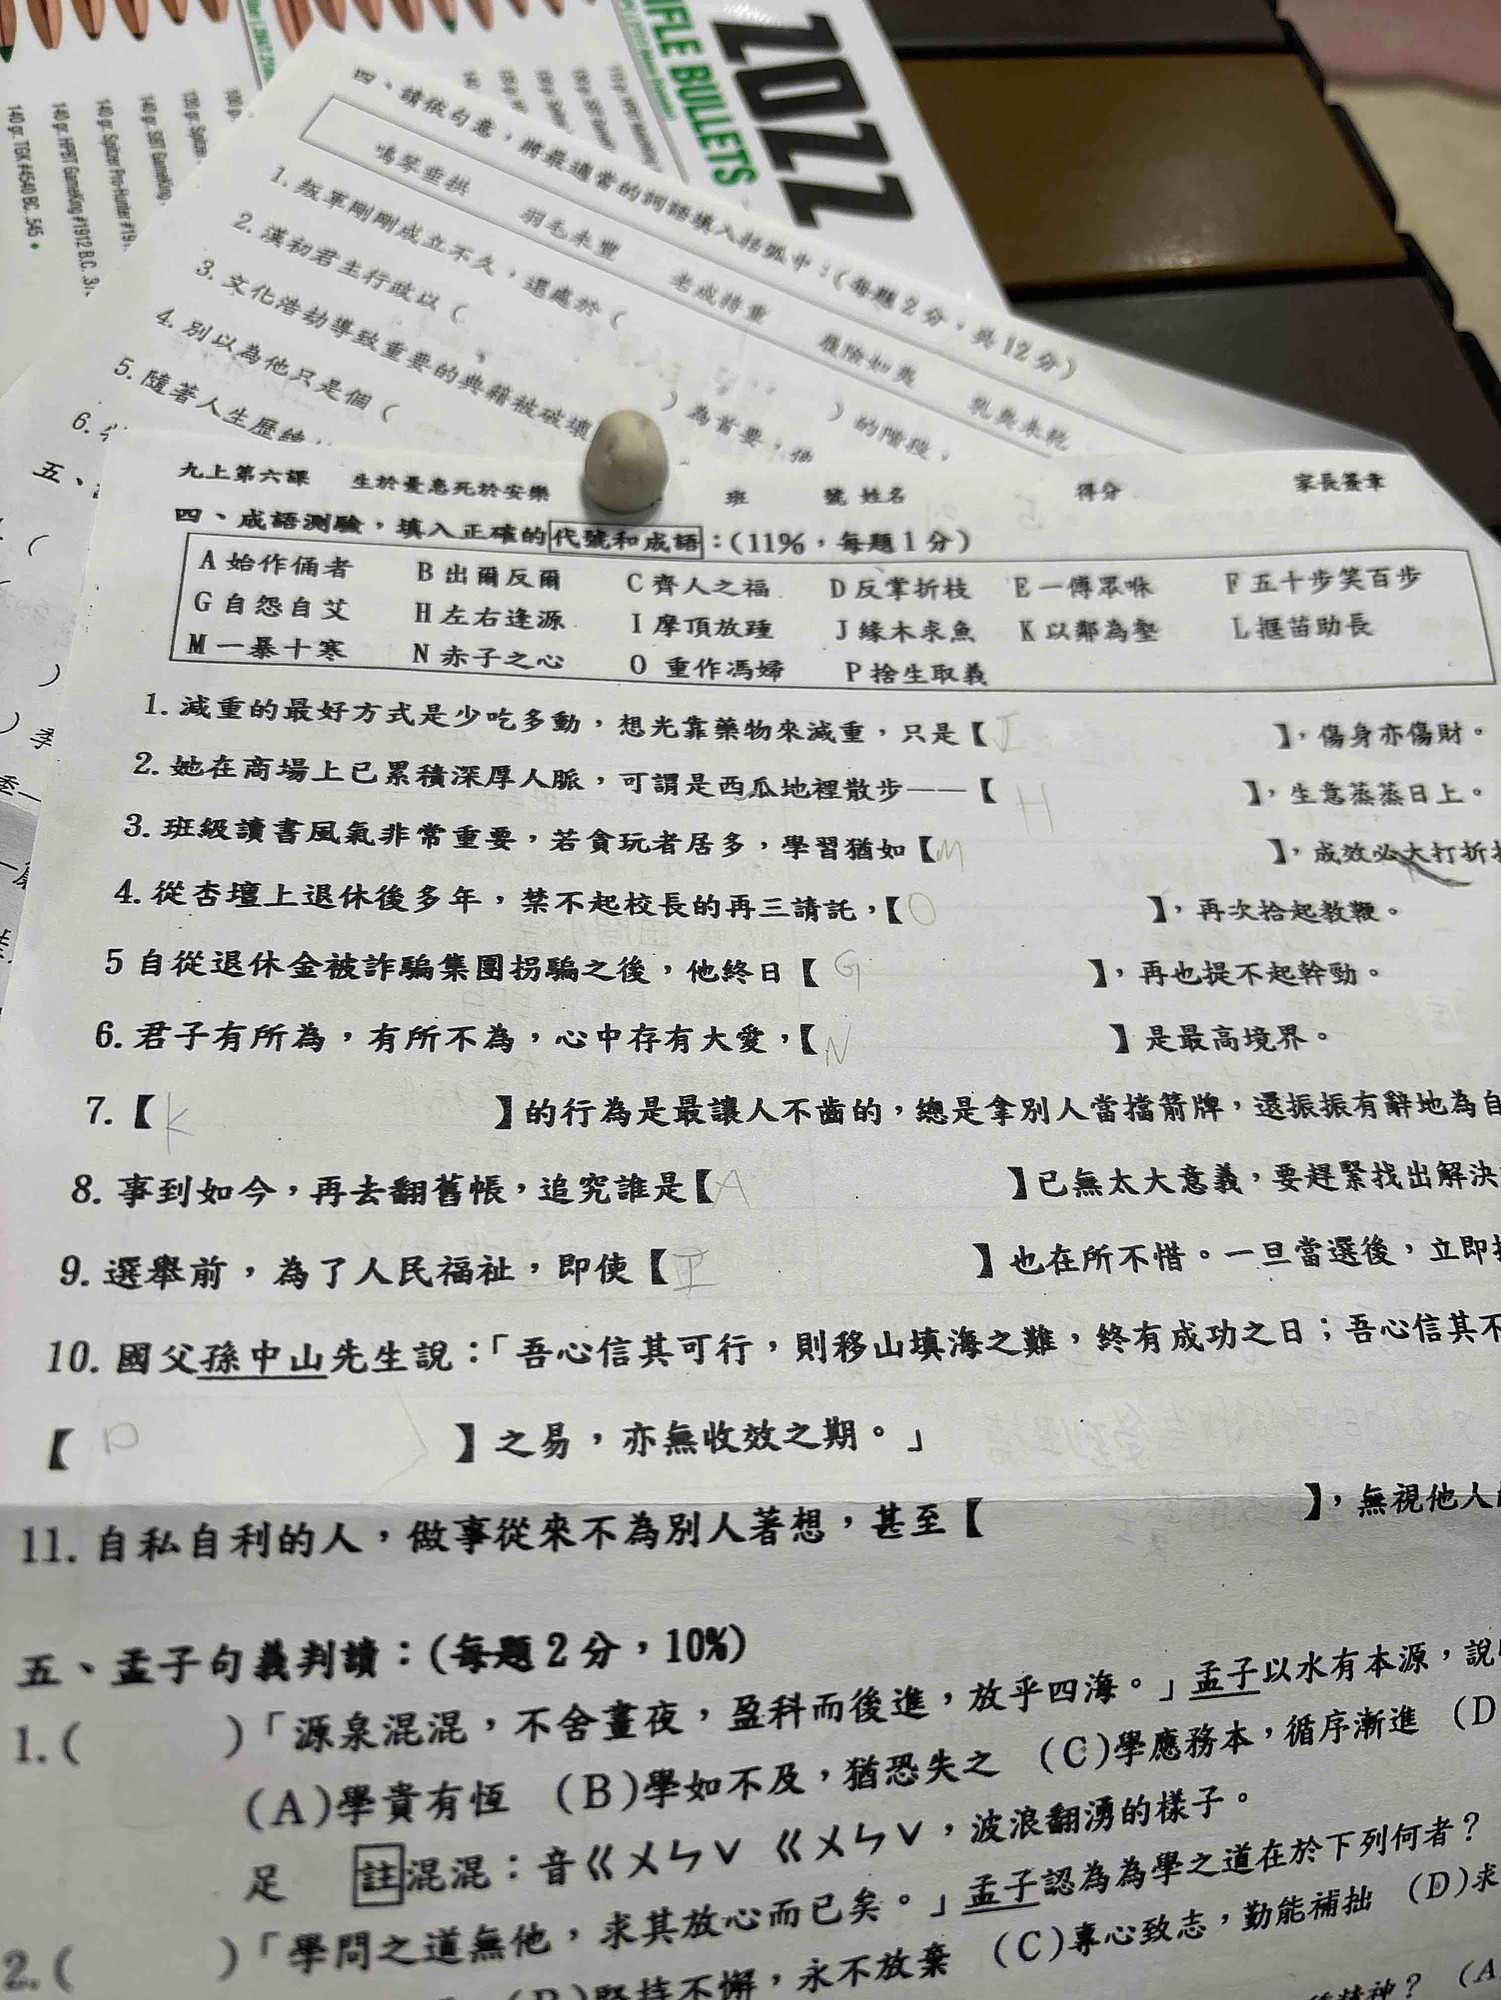 ZOZZ
IFLE BULLETS
140 gr. TGK #4640 BC. .545
140 gr. HPBT GameKing #1912 B.C. .3
140 gr. Spitzer Pro-Hunter #19
140 gr. SBT GameKing
四、請依句意,將最適當的詞語填入括弧中:(每題2分,共12分)
鳴琴垂拱 羽毛未豐 老成持重 履險如夷 乳臭未乾
1. 叛軍剛剛成立不久,還處於( )的階段,
2. 漢初君主行政以( )為首要,
3. 文化浩劫導致重要的典籍被破壞
4. 別以為他只是個(
5. 隨著人生歷
6.
五、
九上第六課 生於憂患死於安樂 班 號 姓名 得分 家長簽章
四、成語測驗,填入正確的代號和成語:(11%,每題1分)
A 始作俑者 B 出爾反爾 C 齊人之福 D 反掌折枝 E 一傅眾咻 F 五十步笑百步
G 自怨自艾 H 左右逢源 I 摩頂放踵 J 緣木求魚 K 以鄰為壑 L 揠苗助長
M 一暴十寒 N 赤子之心 O 重作馮婦 P 捨生取義
1. 減重的最好方式是少吃多動,想光靠藥物來減重,只是【J 】,傷身亦傷財。
2. 她在商場上已累積深厚人脈,可謂是西瓜地裡散步——【H 】,生意蒸蒸日上。
3. 班級讀書風氣非常重要,若貪玩者居多,學習猶如【M 】,成效必大打折
4. 從杏壇上退休後多年,禁不起校長的再三請託,【O 】,再次拾起教鞭。
5 自從退休金被詐騙集團拐騙之後,他終日【G 】,再也提不起幹勁。
6. 君子有所為,有所不為,心中存有大愛,【N 】是最高境界。
7.【K 】的行為是最讓人不齒的,總是拿別人當擋箭牌,還振振有辭地為自
8. 事到如今,再去翻舊帳,追究誰是【A 】已無太大意義,要趕緊找出解決
9. 選舉前,為了人民福祉,即使【I 】也在所不惜。一旦當選後,立即
10. 國父孫中山先生說:「吾心信其可行,則移山填海之難,終有成功之日;吾心信其不
【D 】之易,亦無收效之期。」
11. 自私自利的人,做事從來不為別人著想,甚至【 】,無視他人
五、孟子句義判讀:(每題2分,10%)
1.( )「源泉混混,不舍晝夜,盈科而後進,放乎四海。」孟子以水有本源,說
(A)學貴有恆 (B)學如不及,猶恐失之 (C)學應務本,循序漸進 (D
足 註混混:音ㄍㄨㄣˇ ㄍㄨㄣˇ,波浪翻湧的樣子。
2.( )「學問之道無他,求其放心而已矣。」孟子認為為學之道在於下列何者?
(B)堅持不懈,永不放棄 (C)專心致志,勤能補拙 (D)求
精神? (A